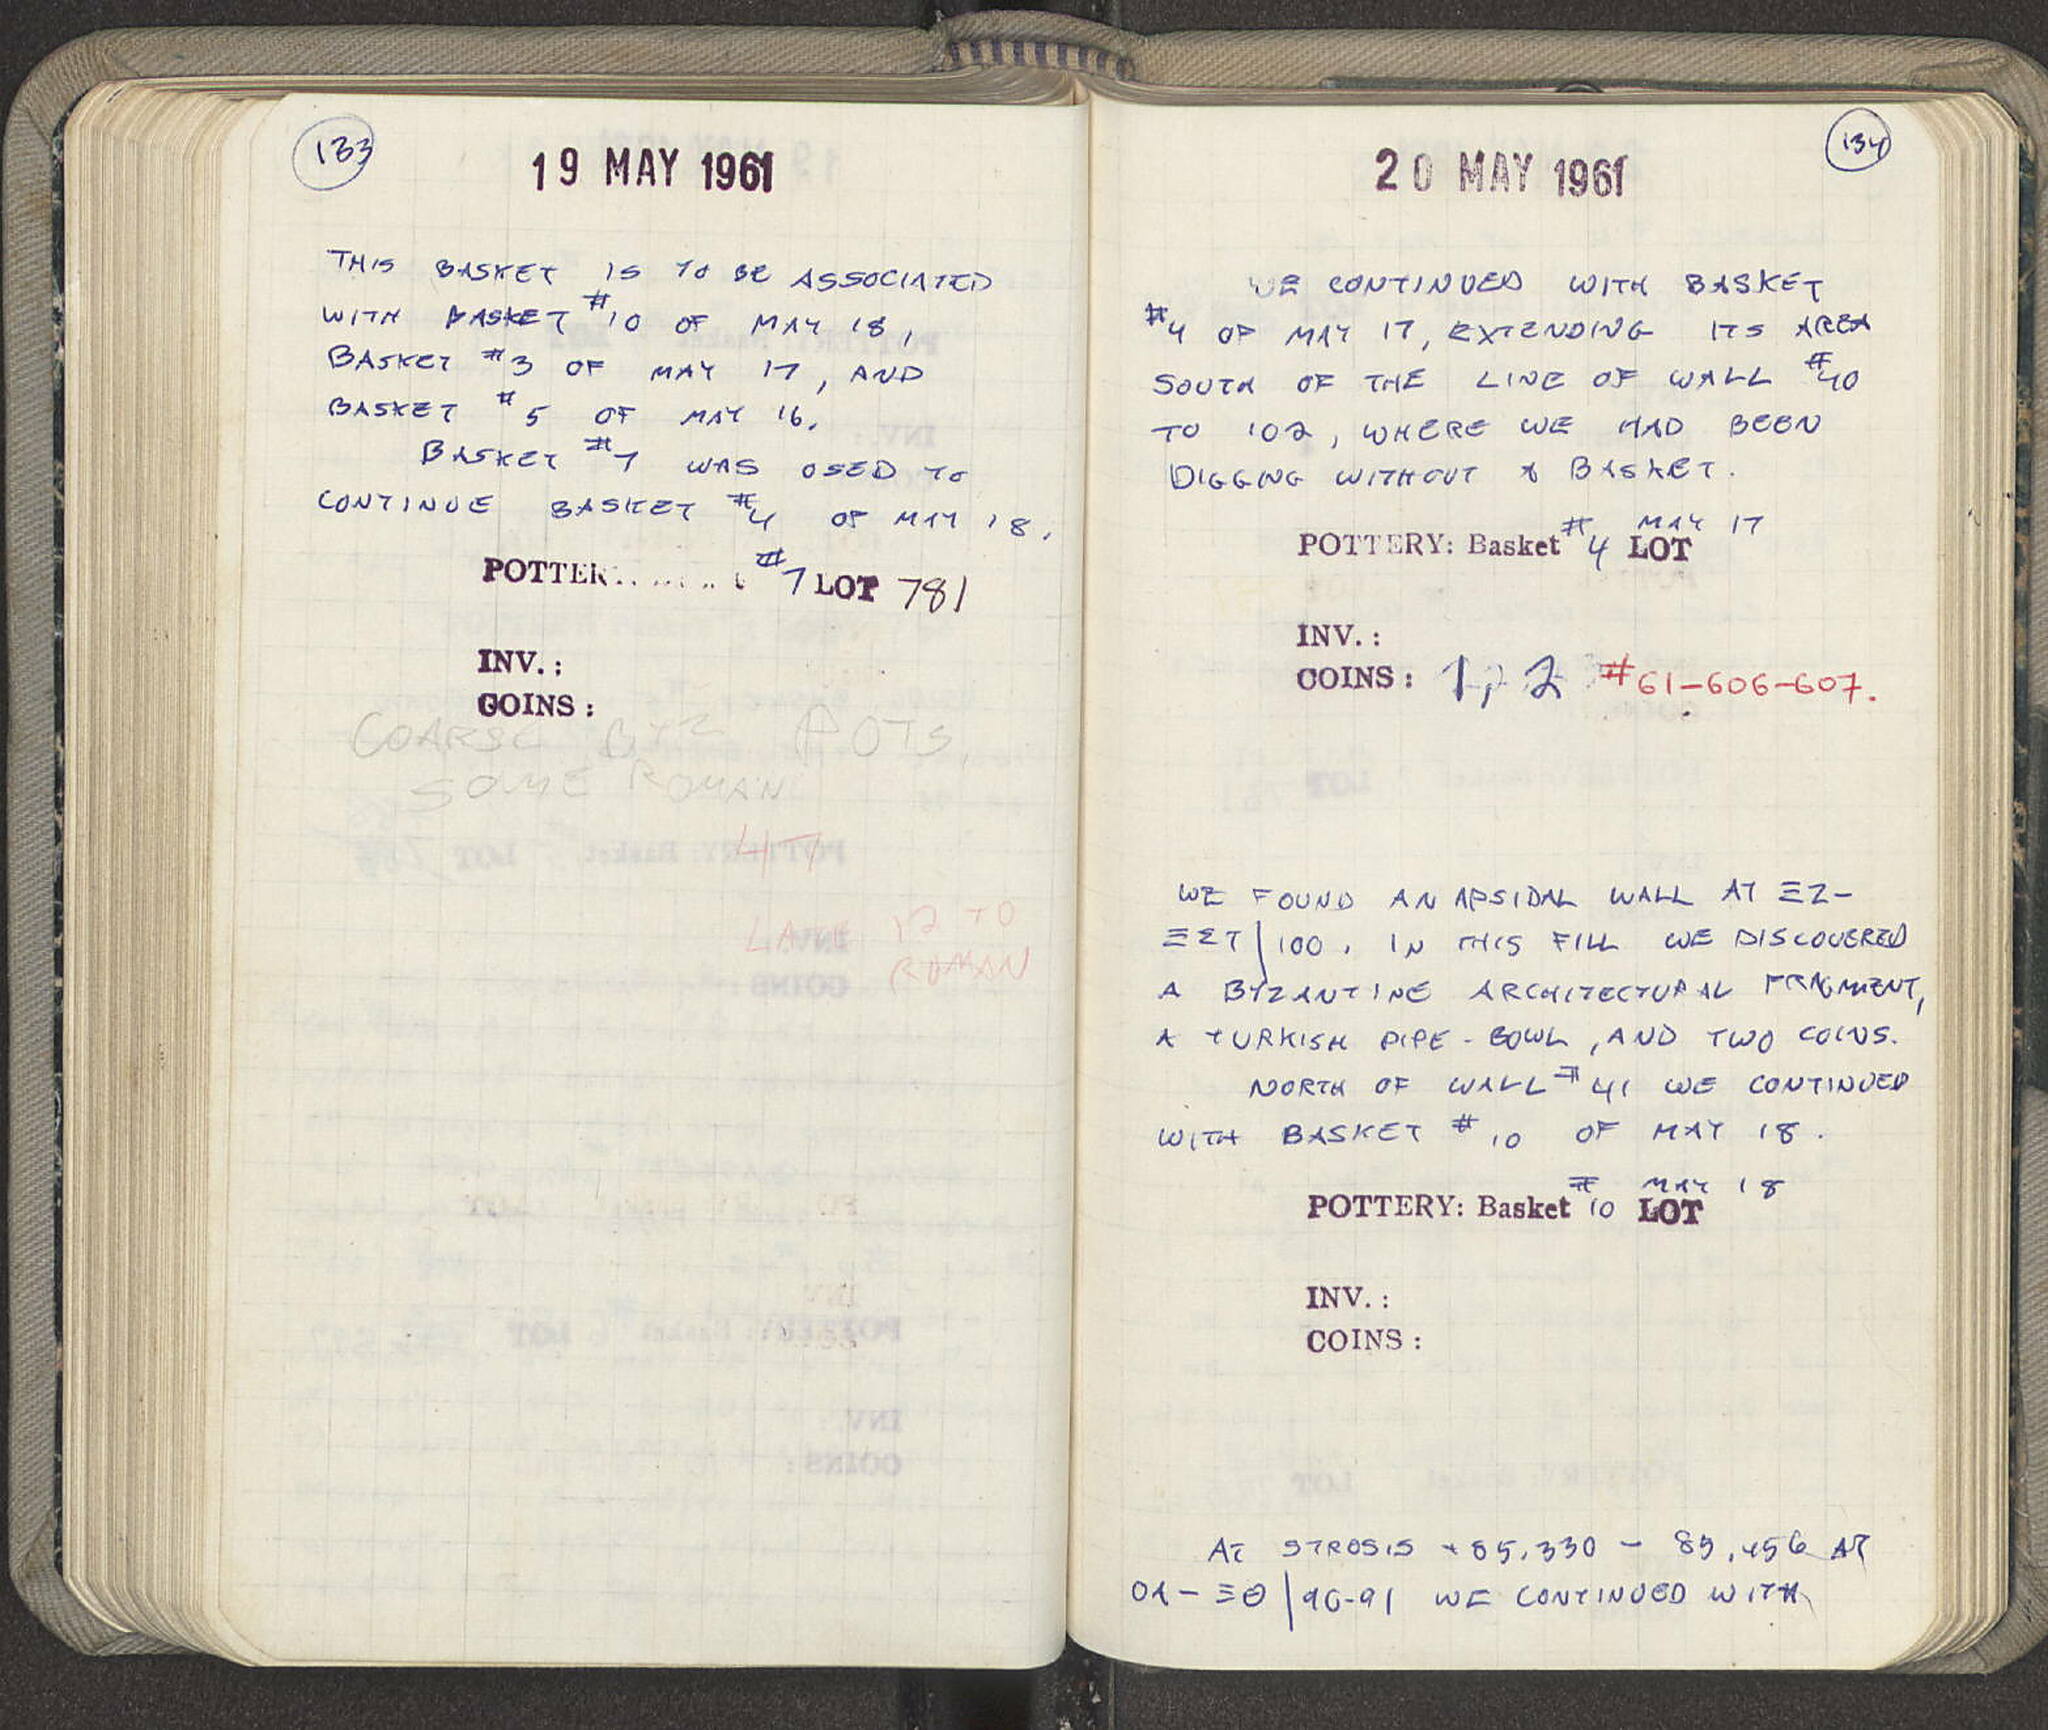 133
19 MAY 1961
THIS BASKET IS TO BE ASSOCIATED
WITH BASKET #10 OF MAY 18,
BASKET #3 OF MAY 17, AND
BASKET #5 OF MAY 16.
BASKET #7 WAS USED TO
CONTINUE BASKET #4 OF MAY 18.
POTTERY: #7 LOT 781
INV.:
COINS:
COARSE BYZ POTS,
SOME ROMAN
LATE 12 TO
ROMAN
134
20 MAY 1961
WE CONTINUED WITH BASKET
#4 OF MAY 17, EXTENDING ITS AREA
SOUTH OF THE LINE OF WALL #40
TO 102, WHERE WE HAD BEEN
DIGGING WITHOUT A BASKET.
POTTERY: Basket #4 LOT MAY 17
INV.:
COINS: 1, 2 #61-606-607.
WE FOUND AN APSIDAL WALL AT ΞZ-
ΞΣΤ/100. IN THIS FILL WE DISCOVERED
A BYZANTINE ARCHITECTURAL FRAGMENT,
A TURKISH PIPE-BOWL, AND TWO COINS.
NORTH OF WALL #41 WE CONTINUED
WITH BASKET #10 OF MAY 18.
POTTERY: Basket #10 LOT MAY 18
INV.:
COINS:
AT STROSIS +85.330 - 85.456 AT
OA-ΞΘ/90-91 WE CONTINUED WITH